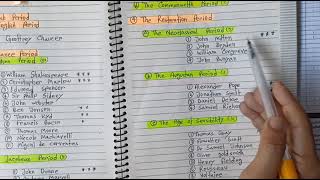 Period
Period
Geoffrey Chaucer
Period
William Shakespeare ***
Christopher Marlow ***
Edmund Spenser
Sir Philip Sidney
John Webster
Ben Jonson
Thomas Kyd
Francis Bacon
Thomas More
Miguel de Cervantes
Jacobean Period
John Donne
The Commonwealth Period
The Restoration Period
The Neoclassical Period
John Milton ***
John Dryden
William Congreve
John Bunyan
The Augustan Period
Alexander Pope
Jonathan Swift
Daniel Defoe
Samuel
The Age of Sensibility
Thomas Gray
Dr Samuel Johnson
Oliver Goldsmith
Henry Fielding
Rousseau
Voltaire